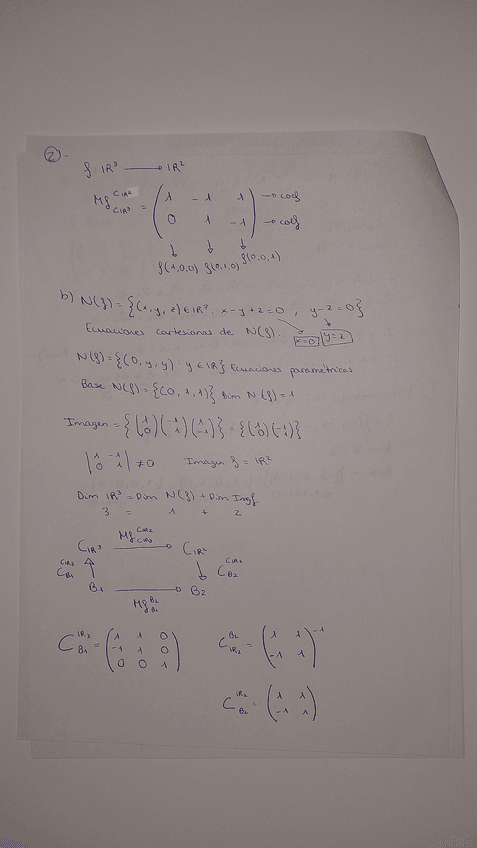 ②-
f: IR³ → IR²
Mf C IR² C IR³ = ( 1 -1 1 → coef
0 1 -1 ) → coef
↓ ↓ ↓
f(1,0,0) f(0,1,0) f(0,0,1)
b) N(f) = {(x, y, z) ∈ IR³ : x-y+z=0, y-z=0}
Ecuaciones cartesianas de N(f). x=0 y=z
N(f) = {(0, y, y) : y ∈ IR} Ecuaciones parametricas
Base N(f) = {(0, 1, 1)} Dim N(f) = 1
Imagen = {(1 0) (-1 1) (1 -1)} = {(1 0) (-1 1)}
|1 -1 0 1| ≠ 0 Imagen f = IR²
Dim IR³ = Dim N(f) + Dim Imgf
3 = 1 + 2
C IR³ → Mf C IR² C IR³ → C IR²
C C IR³ B1 ↑ ↓ C C IR² B2
B1 → B2
Mf B2 B1
C IR³ B1 = ( 1 1 0
-1 1 0
0 0 1 )
C B2 IR² = ( 1 1
-1 1 ) -1
C IR² B2 = ( 1 1
-1 1 )